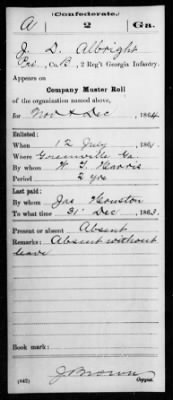 (Confederate.)
A 2 Ga.
J. D. Albright
Pri, Co. B, 2 Reg't Georgia Infantry.
Appears on
Company Muster Roll
of the organization named above,
for Nov & Dec, 1864.
Enlisted:
When 12 July, 1861.
Where Greenville Ga
By whom W. T. Harris
Period 2 yrs
Last paid:
By whom Jas Houston
To what time 31 Dec, 1863.
Present or absent Absent
Remarks: Absent without
leave
Book mark:
(642) J Brown
Copyist.